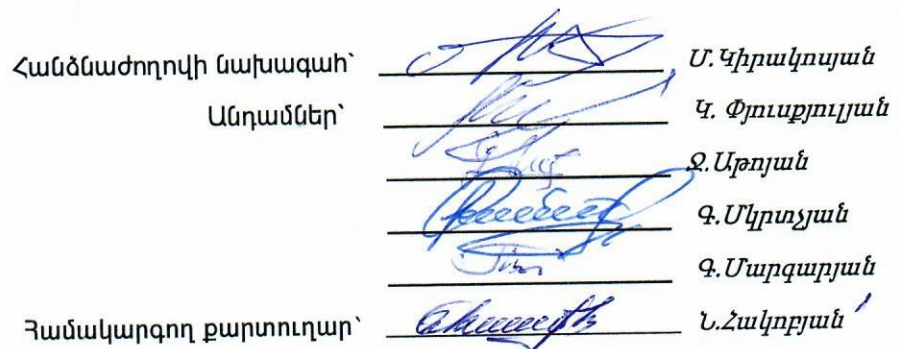 Հանձնաժողովի նախագահ՝ Մ.Կիրակոսյան
Անդամներ՝ Կ. Փյուսքյուլյան
Ջ.Աթոյան
Գ.Մկրտչյան
Գ.Մարգարյան
Համակարգող քարտուղար՝ Ն.Հակոբյան